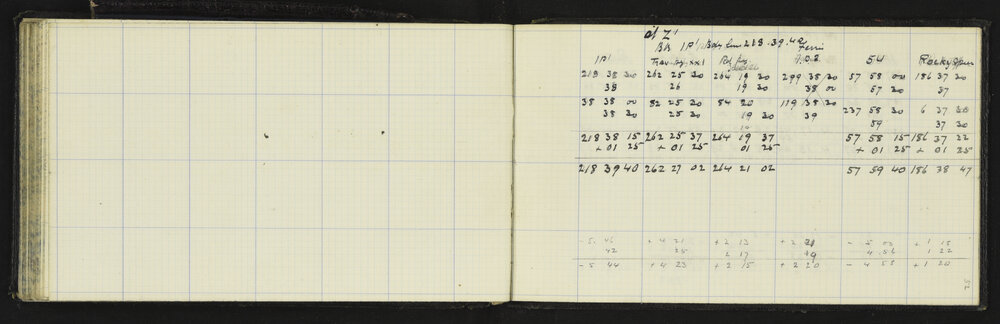 at Z'
Bk 1P' Bdy line 218.39.40
1P' Trav. Stn. XXI Rd Peg Ferri A.O.S. 54 Rocky Spur
218 38 30 262 25 30 264 19 30 299 38 30 57 58 00 186 37 20
38 26 19 30 38 00 57 30 37
38 38 00 82 25 30 84 20 119 38 30 237 58 30 6 37 30
38 30 25 30 19 30 39 59 37 30
218 38 15 262 25 37 264 19 37 57 58 15 186 37 22
+ 01 25 + 01 25 01 25 + 01 25 + 01 25
218 39 40 262 27 02 264 21 02 57 59 40 186 38 47
- 5 46 + 4 21 + 2 13 + 2 21 - 5 00 + 1 18
42 25 2 17 19 4 56 1 22
- 5 44 + 4 23 + 2 15 + 2 20 - 4 58 + 1 20
25